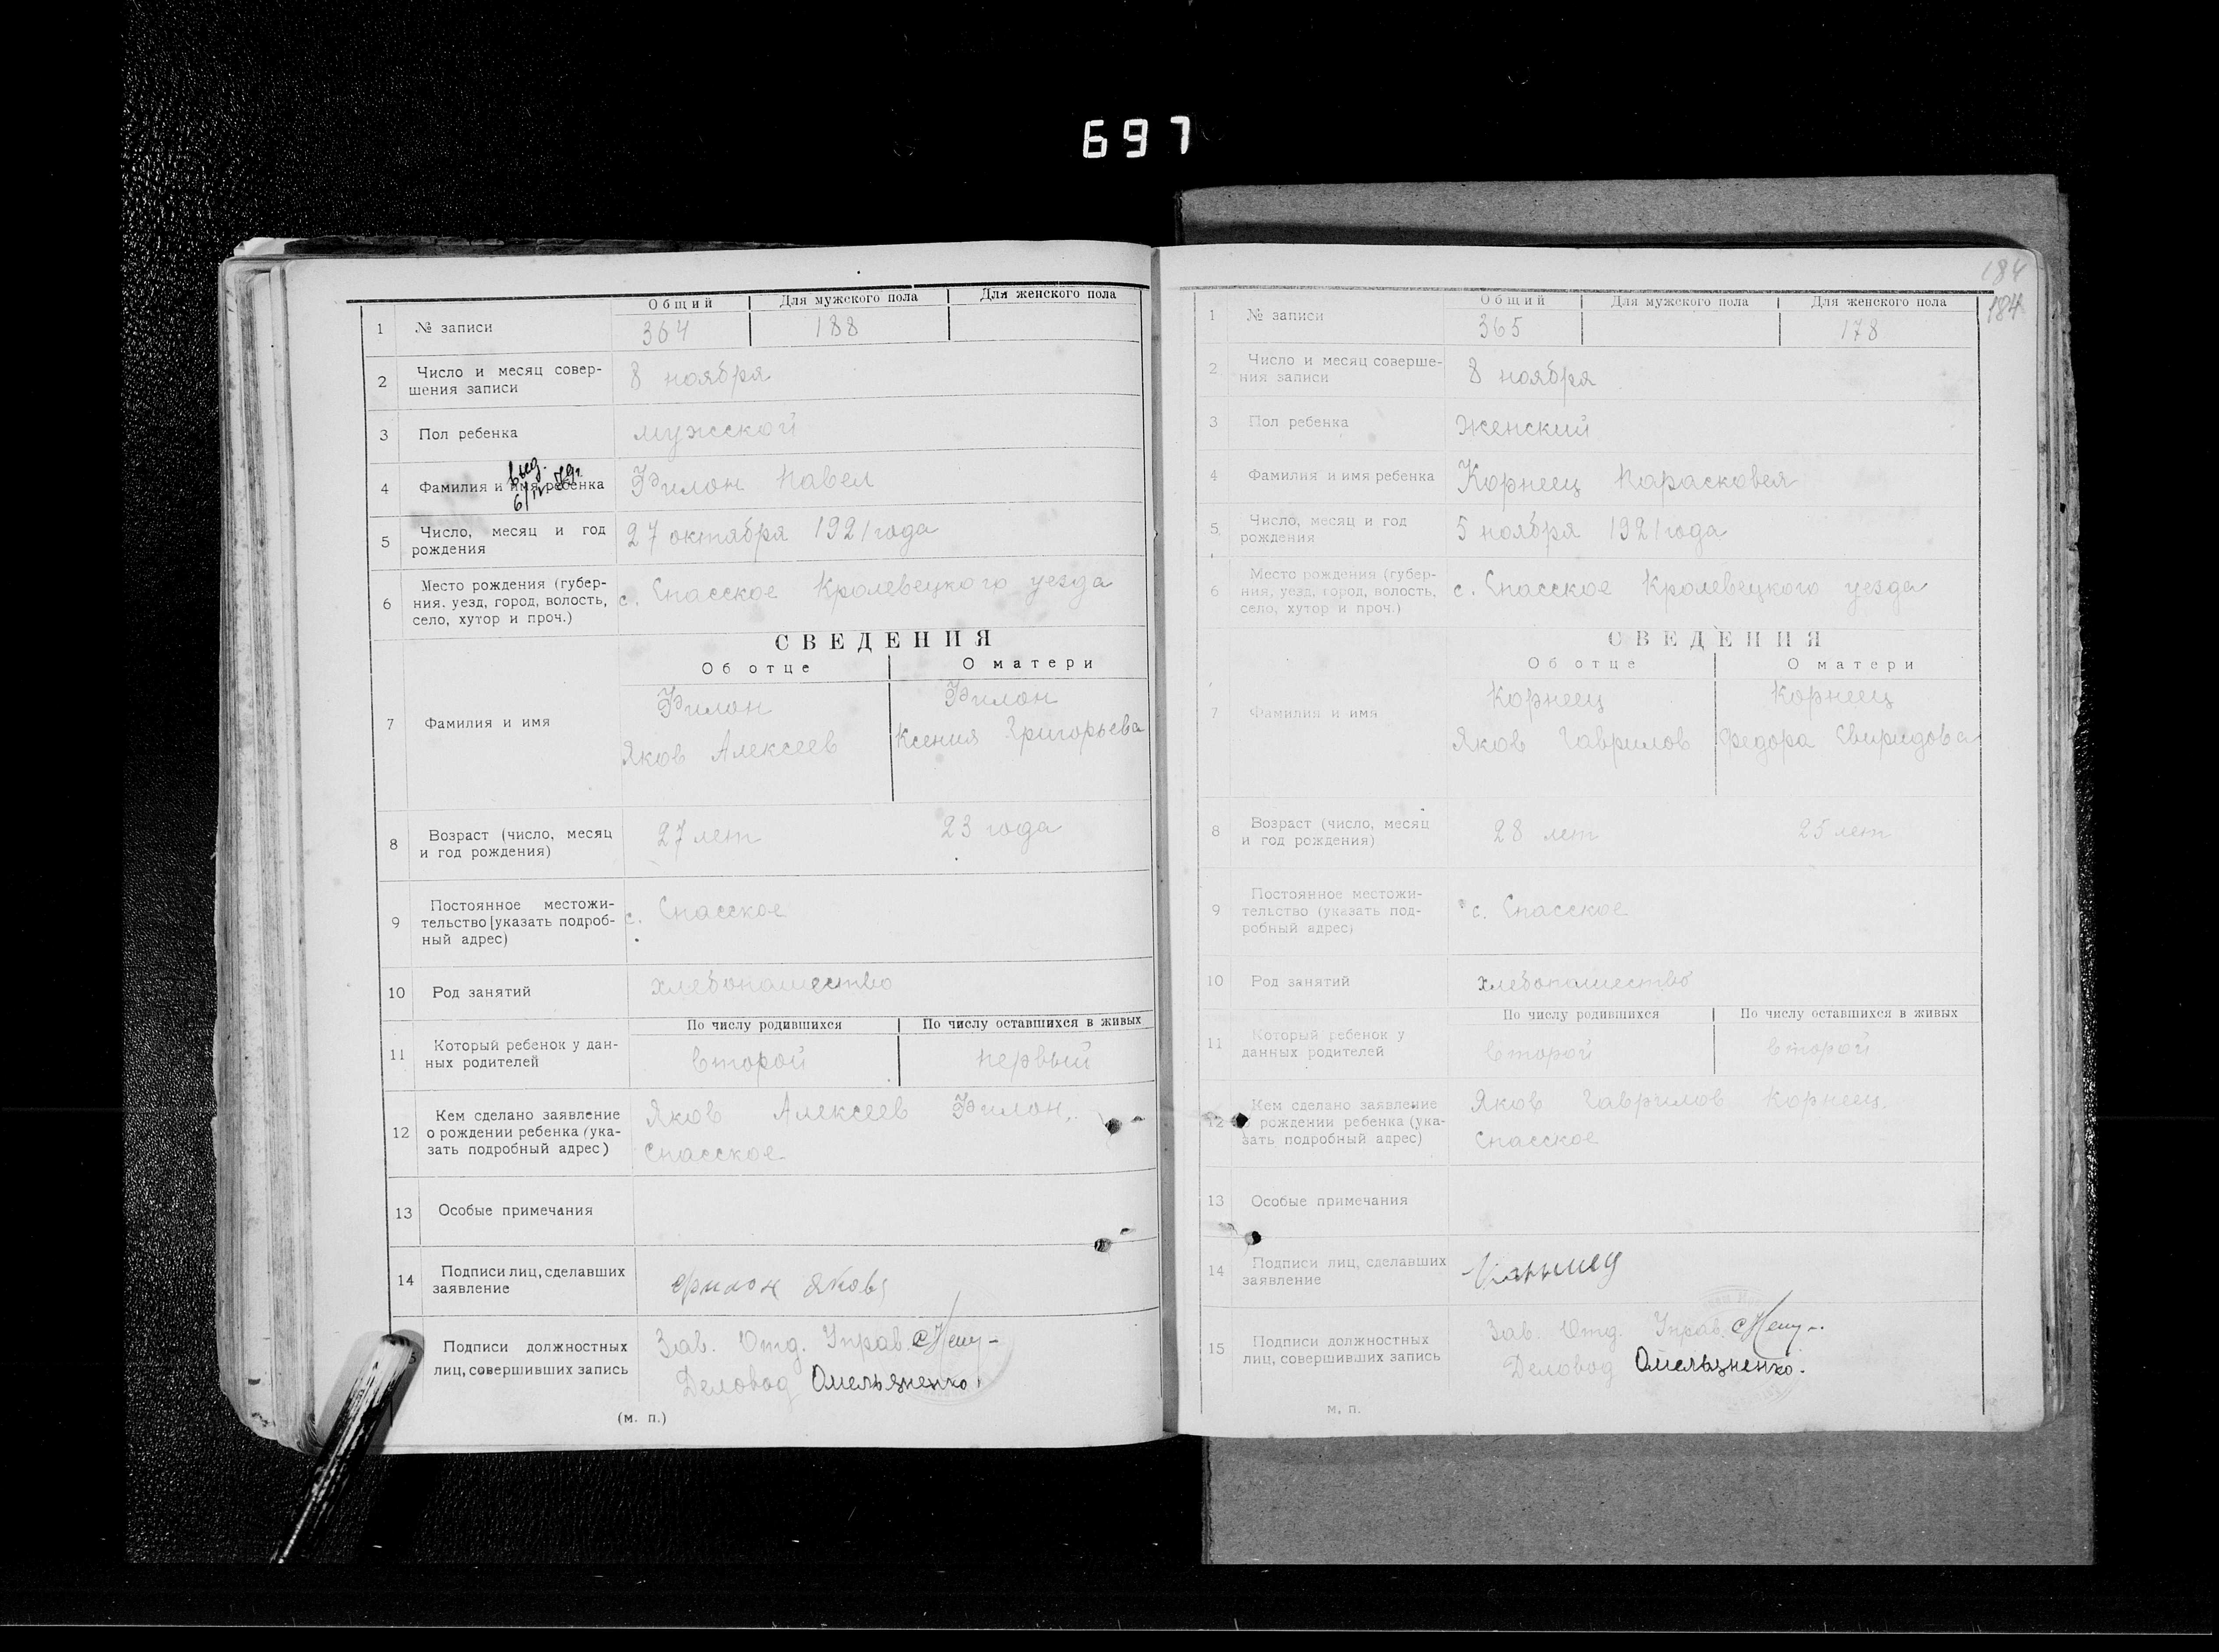 697
Общий Для мужского пола Для женского пола
1 № записи 364 188
2 Число и месяц совер-
шения записи 8 ноября
3 Пол ребенка мужской
4 Фамилия и имя ребенка Филон Павел
выд.
6/IV
5 Число, месяц и год
рождения 27 октября 1921 года
6 Место рождения (губер-
ния, уезд, город, волость,
село, хутор и проч.) с. Спасское Кролевецкого уезда
СВЕДЕНИЯ
Об отце О матери
7 Фамилия и имя
Филон Филон
Яков Алексеев Ксения Григорьева
8 Возраст (число, месяц
и год рождения) 27 лет 23 года
9 Постоянное местожи-
тельство [указать подроб-
ный адрес) с. Спасское
10 Род занятий хлебопашество
По числу родившихся По числу оставшихся в живых
11 Который ребенок у дан-
ных родителей второй первый
12 Кем сделано заявление
о рождении ребенка (ука-
зать подробный адрес)
Яков Алексеев Филон,
Спасское
13 Особые примечания
14 Подписи лиц, сделавших
заявление Филон Яков
Подписи должностных
лиц, совершивших запись
Зав. Отд. Управ.
Деловод Омельяненко.
(м. п.)
184
184
Общий Для мужского пола Для женского пола
1 № записи 365 178
2 Число и месяц соверше-
ния записи 8 ноября
3 Пол ребенка Женский
4 Фамилия и имя ребенка Корнеец Парасковея
5 Число, месяц и год
рождения 5 ноября 1921 года
6 Место рождения (губер-
ния, уезд, город, волость,
село, хутор и проч.) с. Спасское Кролевецкого уезда
СВЕДЕНИЯ
Об отце О матери
7 Фамилия и имя
Корнеец Корнеец
Яков Гаврилов Федора Свиридова
8 Возраст (число, месяц
и год рождения) 28 лет 25 лет
9 Постоянное местожи-
тельство (указать под-
робный адрес) с. Спасское
10 Род занятий хлебопашество
По числу родившихся По числу оставшихся в живых
11 Который ребенок у
данных родителей второй второй
12 Кем сделано заявление
о рождении ребенка (ука-
зать подробный адрес)
Яков Гаврилов Корнеец.
Спасское
13 Особые примечания
14 Подписи лиц, сделавших
заявление
15 Подписи должностных
лиц, совершивших запись
Зав. Отд. Управ.
Деловод Омельяненко.
м. п.